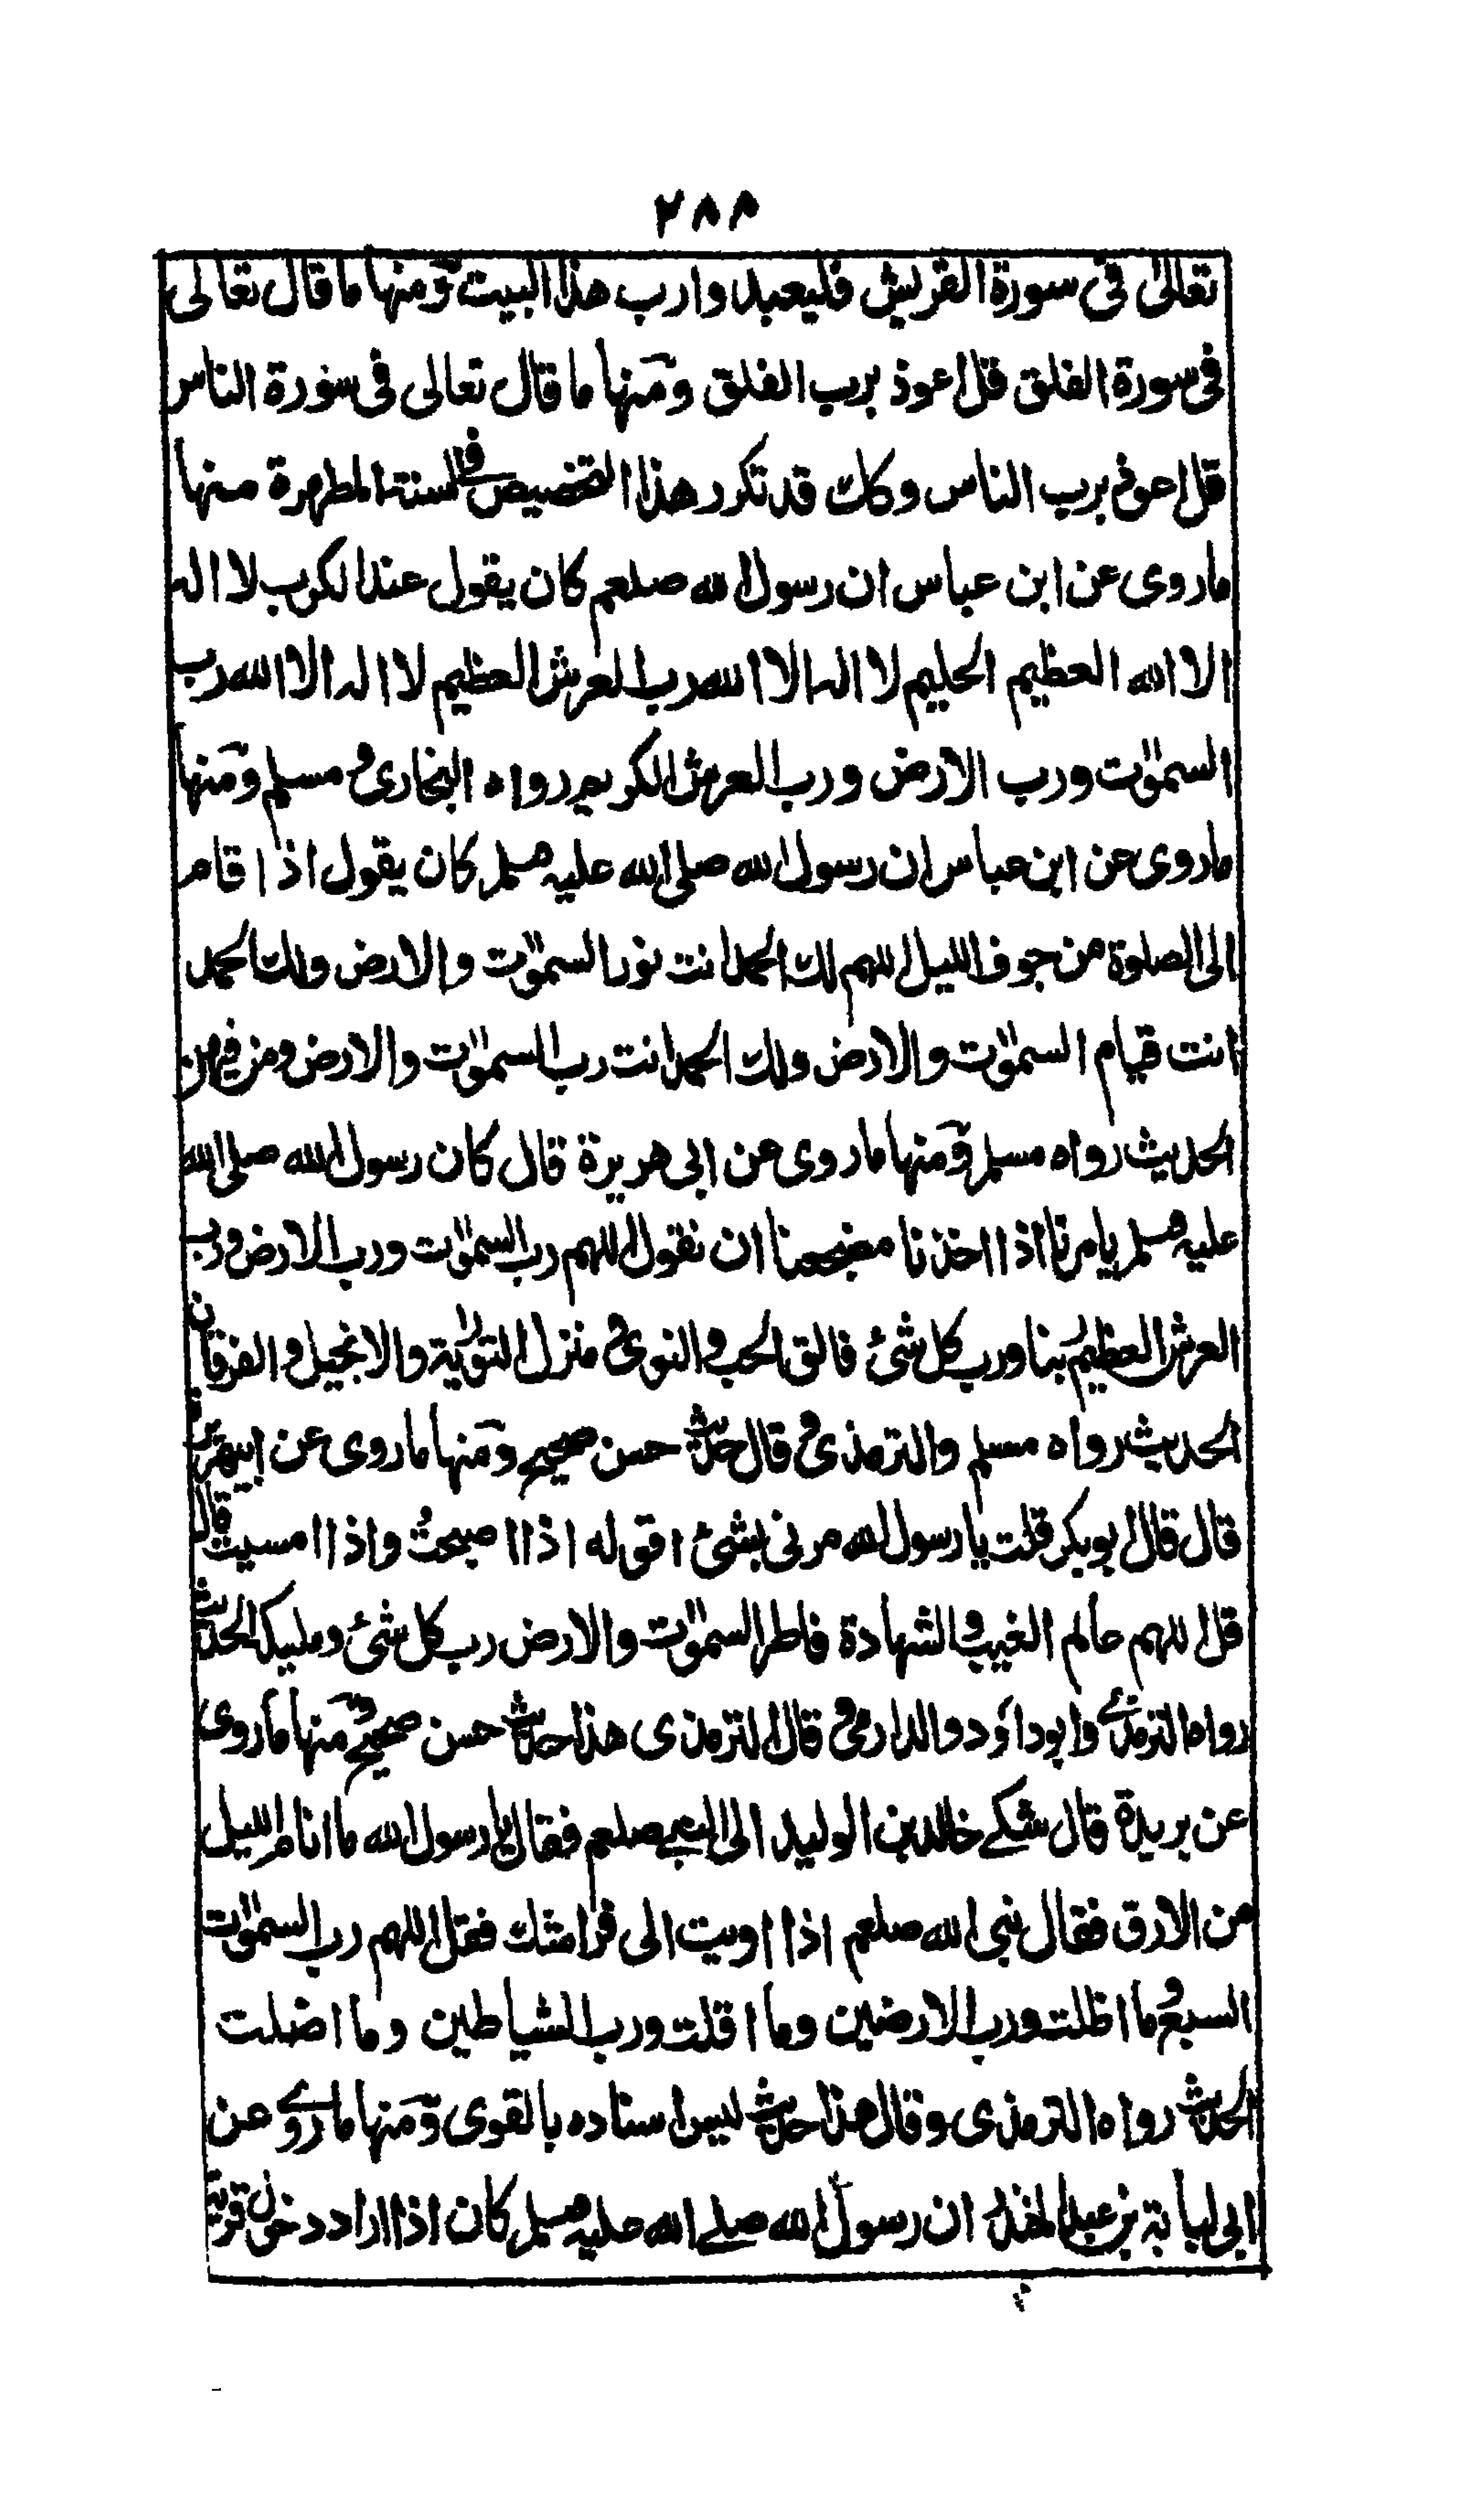 ٢٨٨
تعالىٰ فى سورة القريش فليعبدوا رب هذا البيت ومنها ما قال تعالى
فى سورة الفلق قل اعوذ برب الفلق ومنها ما قال تعالى فى سورة الناس
قل اعوذ برب الناس وكك قد تكرر هذا التخصيص فى السنة المطهرة منها
ماروى عن ابن عباس ان رسول الله صلعم كان يقول عند الكرب لا اله
الا الله العظيم الحليم لا اله الا الله رب العرش العظيم لا اله الا الله رب
السموٰت ورب الارض ورب العرش الكريم رواه البخارى ومسلم ومنها
ماروى عن ابن عباس ان رسول الله صلى الله عليه وسلم كان يقول اذا قام
الى الصلوة من جوف الليل اللهم لك الحمد انت نور السموٰت والارض ولك الحمد
انت قيام السموٰت والارض ولك الحمد انت رب السموٰت والارض ومن فيهن
الحديث رواه مسلم ومنها ماروى عن ابى هريرة قال كان رسول الله صلى الله
عليه وسلم يامرنا اذا اخذنا مضجعنا ان نقول اللهم رب السموٰت ورب الارض ورب
العرش العظيم ربنا ورب كل شئ فالق الحب والنوى ومنزل التورٰية والانجيل والفرقان
الحديث رواه مسلم والترمذى وقال حديث حسن صحيح ومنها ماروى عن ابيهريرة
قال قال ابوبكر قلت يا رسول الله مرنى بشئ اقوله اذا اصبحت واذا امسيت قال
قل اللهم عالم الغيب والشهادة فاطر السموٰت والارض رب كل شئ ومليكه الحديث
رواه الترمذى وابوداؤد والدارمى وقال الترمذى هذا حديث حسن صحيح ومنها ماروى
عن بريدة قال شكى خالد بن الوليد الى النبى صلعم فقال يا رسول الله ما انام الليل
من الارق فقال نبى الله صلعم اذا اويت الى فراشك فقل اللهم رب السموٰت
السبع وما اظلت ورب الارضين وما اقلت ورب الشياطين وما اضلت
الحديث رواه الترمذى وقال هذا حديث ليس اسناده بالقوى ومنها ماروى عن
ابى لبابة بن عبد المنذر ان رسول الله صلى الله عليه وسلم كان اذا اراد دخول قرية